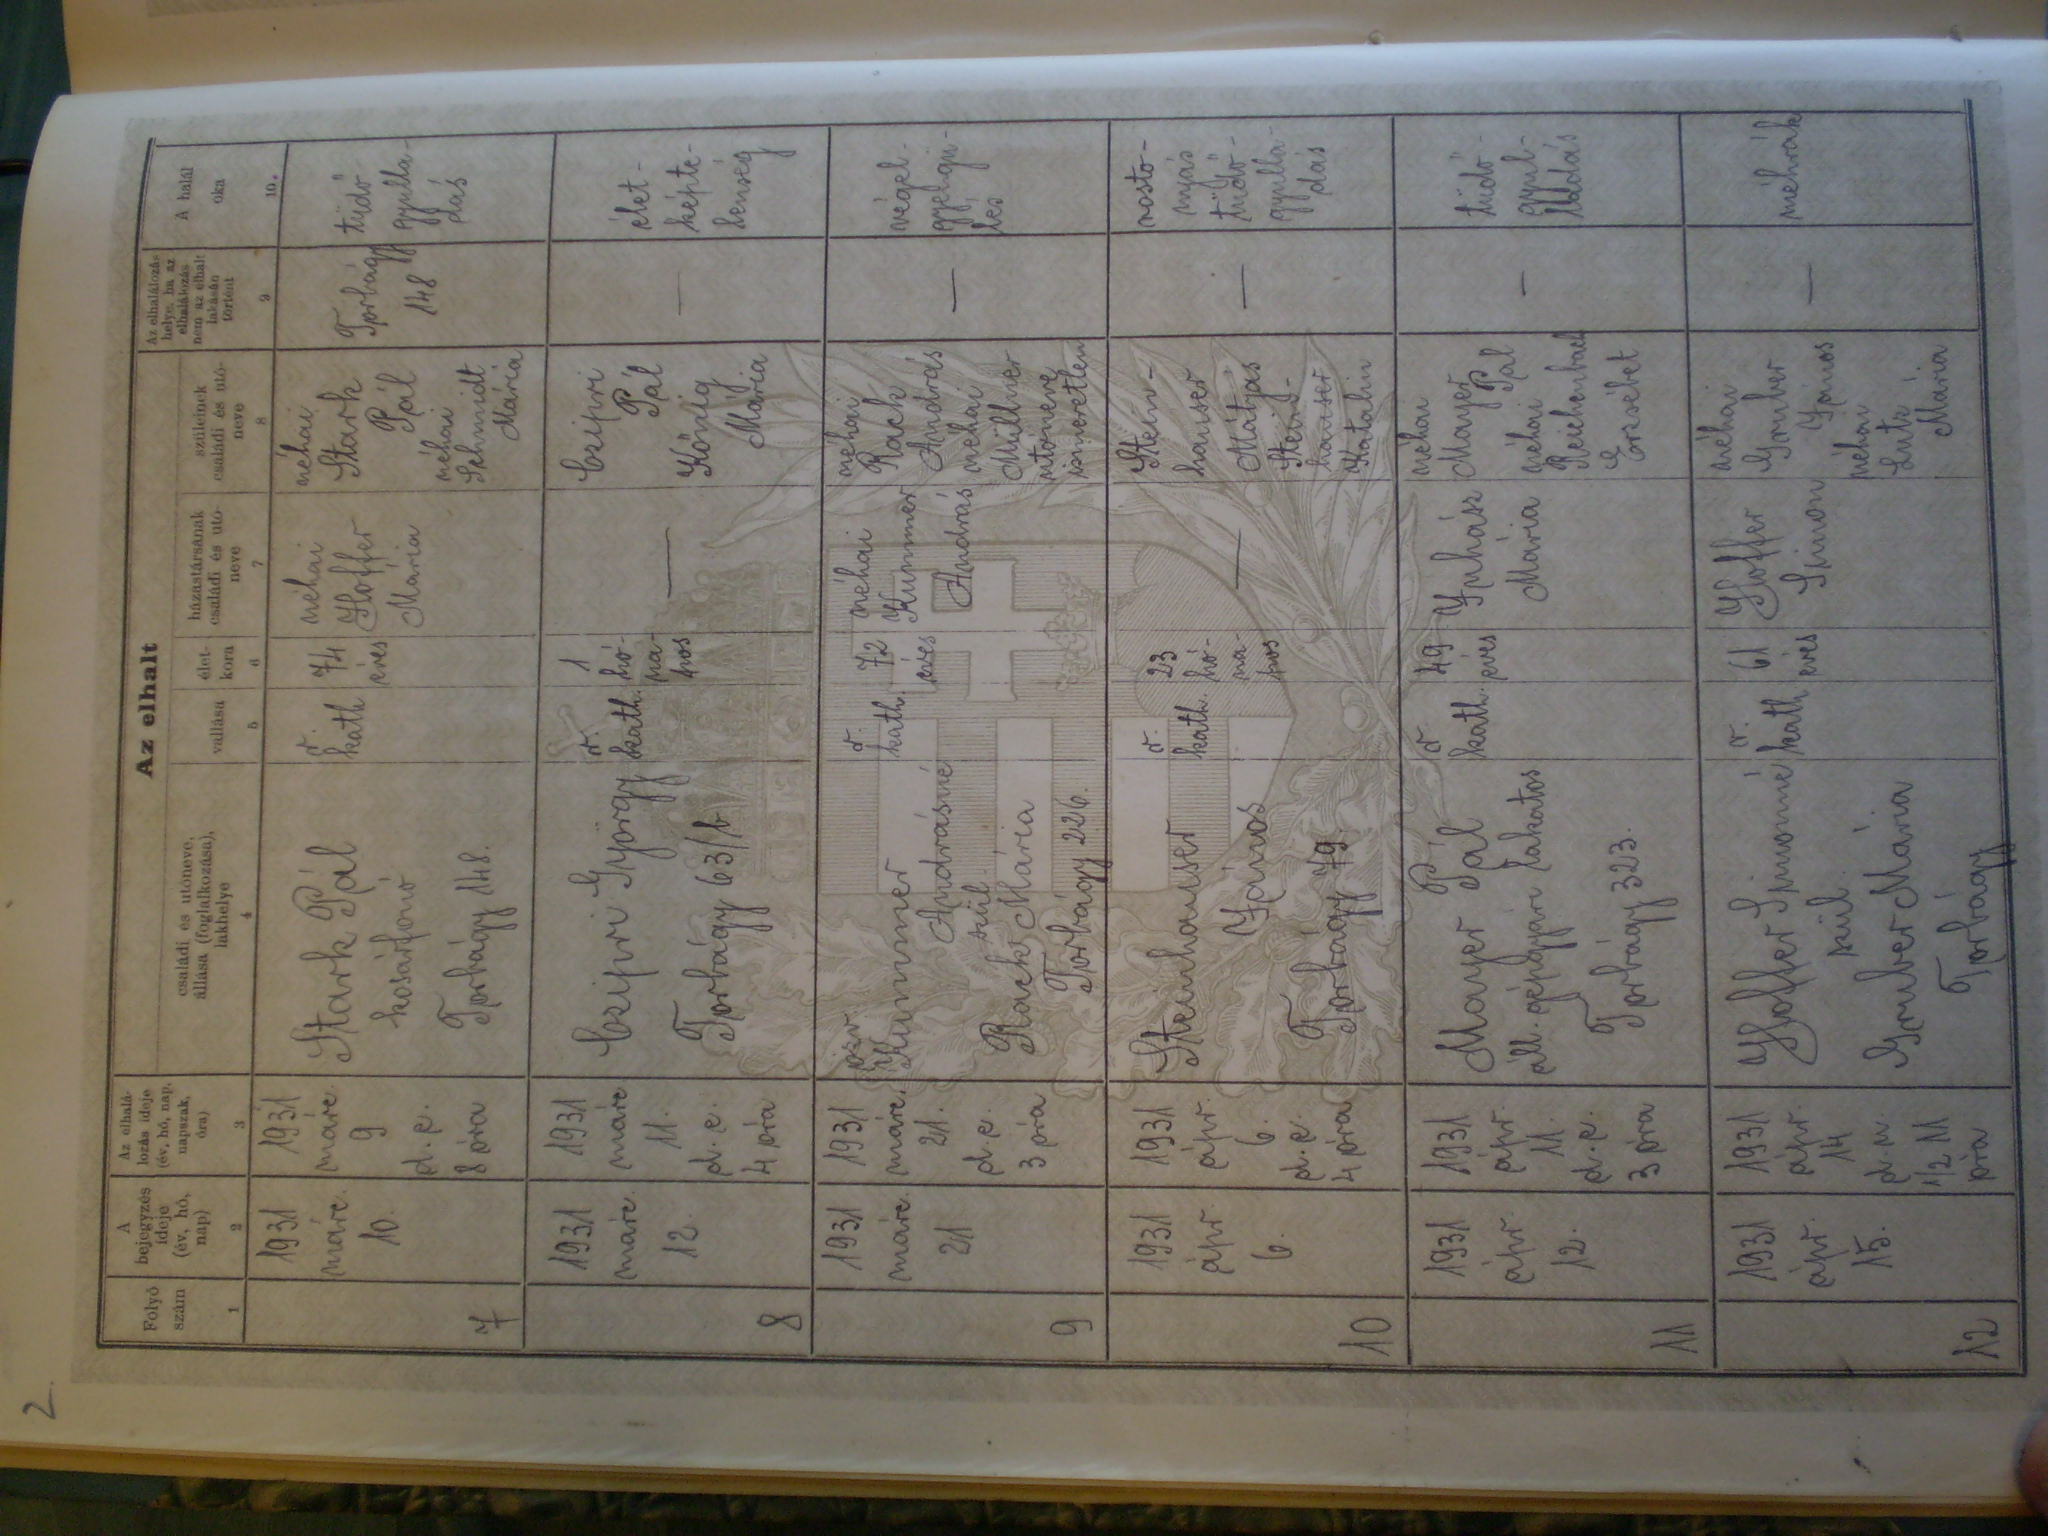 2.
Folyó
szám
1
A
bejegyzés
ideje
(év, hó,
nap)
2
Az elhalá-
lozás ideje
(év, hó, nap,
napszak,
óra)
3
Az elhalt
családi és utóneve,
állása (foglalkozása),
lakhelye
4
vallása
5
élet-
kora
6
házastársának
családi és utó-
neve
7
szüleinek
családi és utó-
neve
8
Az elhalálozás
helye, ha az
elhalálozás
nem az elhalt
lakásán
történt
9
A halál
oka
10.
7
1931
márc.
10.
1931
márc.
9
d. e.
8 óra
Stark Pál
kosárfonó
Torbágy 148.
r.
kath
74
éves
néhai
Hoffer
Mária
néhai
Stark
Pál
néhai
Schmidt
Mária
Torbágy
148
tüdő
gyulla-
dás
8
1931
márc.
12.
1931
márc
11.
d. e.
4 óra
Czipri György
Torbágy 63/b
r.
kath.
1
hó-
na-
pos
—
Czipri
Pál
König
Mária
—
élet-
képte-
lenség
9
1931
márc.
21
1931
márc.
21.
d. e.
3 óra
özv.
Kummer
Andrásné
szül.
Rack Mária
Torbágy 226.
r.
kath.
72
éves
néhai
Kummer
András
néhai
Rack
András
néhai
Müllner
utóneve
ismeretlen
—
végel-
gyengü-
lés
10
1931
ápr.
6.
1931
ápr.
6.
d. e.
4 óra
Steinhauser
János
Torbágy 79.
r.
kath.
23
hó-
na-
pos
—
Stein-
hauser
Mátyás
Stein-
hauser
Katalin
—
rosto-
nyás
tüdő-
gyulla-
dás
11
1931
ápr.
12.
1931
ápr.
11.
d. e.
3 óra
Mayer Pál
áll. gépgyári lakatos
Torbágy 323.
r.
kath.
49
éves
Juhász
Mária
néhai
Mayer
Pál
néhai
Reichenbach
Erzsébet
—
tüdő-
gyul-
ladás
12
1931
ápr.
15.
1931
ápr.
14
d. u.
1/2 11
óra
Hoffer Simonné
szül.
Gruber Mária
Torbágy
r.
kath
61
éves
Hoffer
Simon
néhai
Gruber
János
néhai
Lutz
Mária
—
méhrák